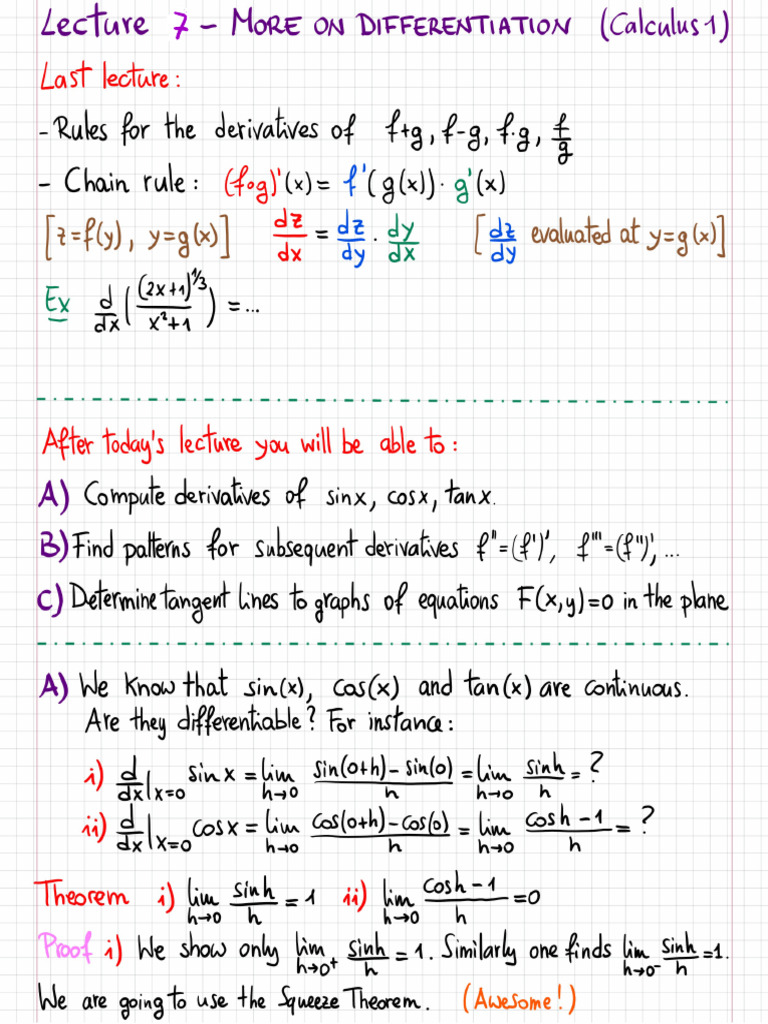 Lecture 7 – MORE ON DIFFERENTIATION (Calculus 1)
Last lecture:
- Rules for the derivatives of f+g, f-g, f·g, f/g
- Chain rule: (f∘g)'(x) = f'(g(x))·g'(x)
[z=f(y), y=g(x)] dz/dx = dz/dy · dy/dx [dz/dy evaluated at y=g(x)]
Ex d/dx((2x+1)^1/3 / x²+1) = ...
After today's lecture you will be able to:
A) Compute derivatives of sinx, cosx, tanx.
B) Find patterns for subsequent derivatives f''=(f')', f'''=(f'')', ...
C) Determine tangent lines to graphs of equations F(x,y)=0 in the plane
A) We know that sin(x), cos(x) and tan(x) are continuous.
Are they differentiable? For instance:
i) d/dx|x=0 sinx = lim h→0 sin(0+h)-sin(0)/h = lim h→0 sinh/h = ?
ii) d/dx|x=0 cosx = lim h→0 cos(0+h)-cos(0)/h = lim h→0 cosh-1/h = ?
Theorem i) lim h→0 sinh/h = 1 ii) lim h→0 cosh-1/h = 0
Proof i) We show only lim h→0⁺ sinh/h = 1. Similarly one finds lim h→0⁻ sinh/h = 1.
We are going to use the Squeeze Theorem. (Awesome!)